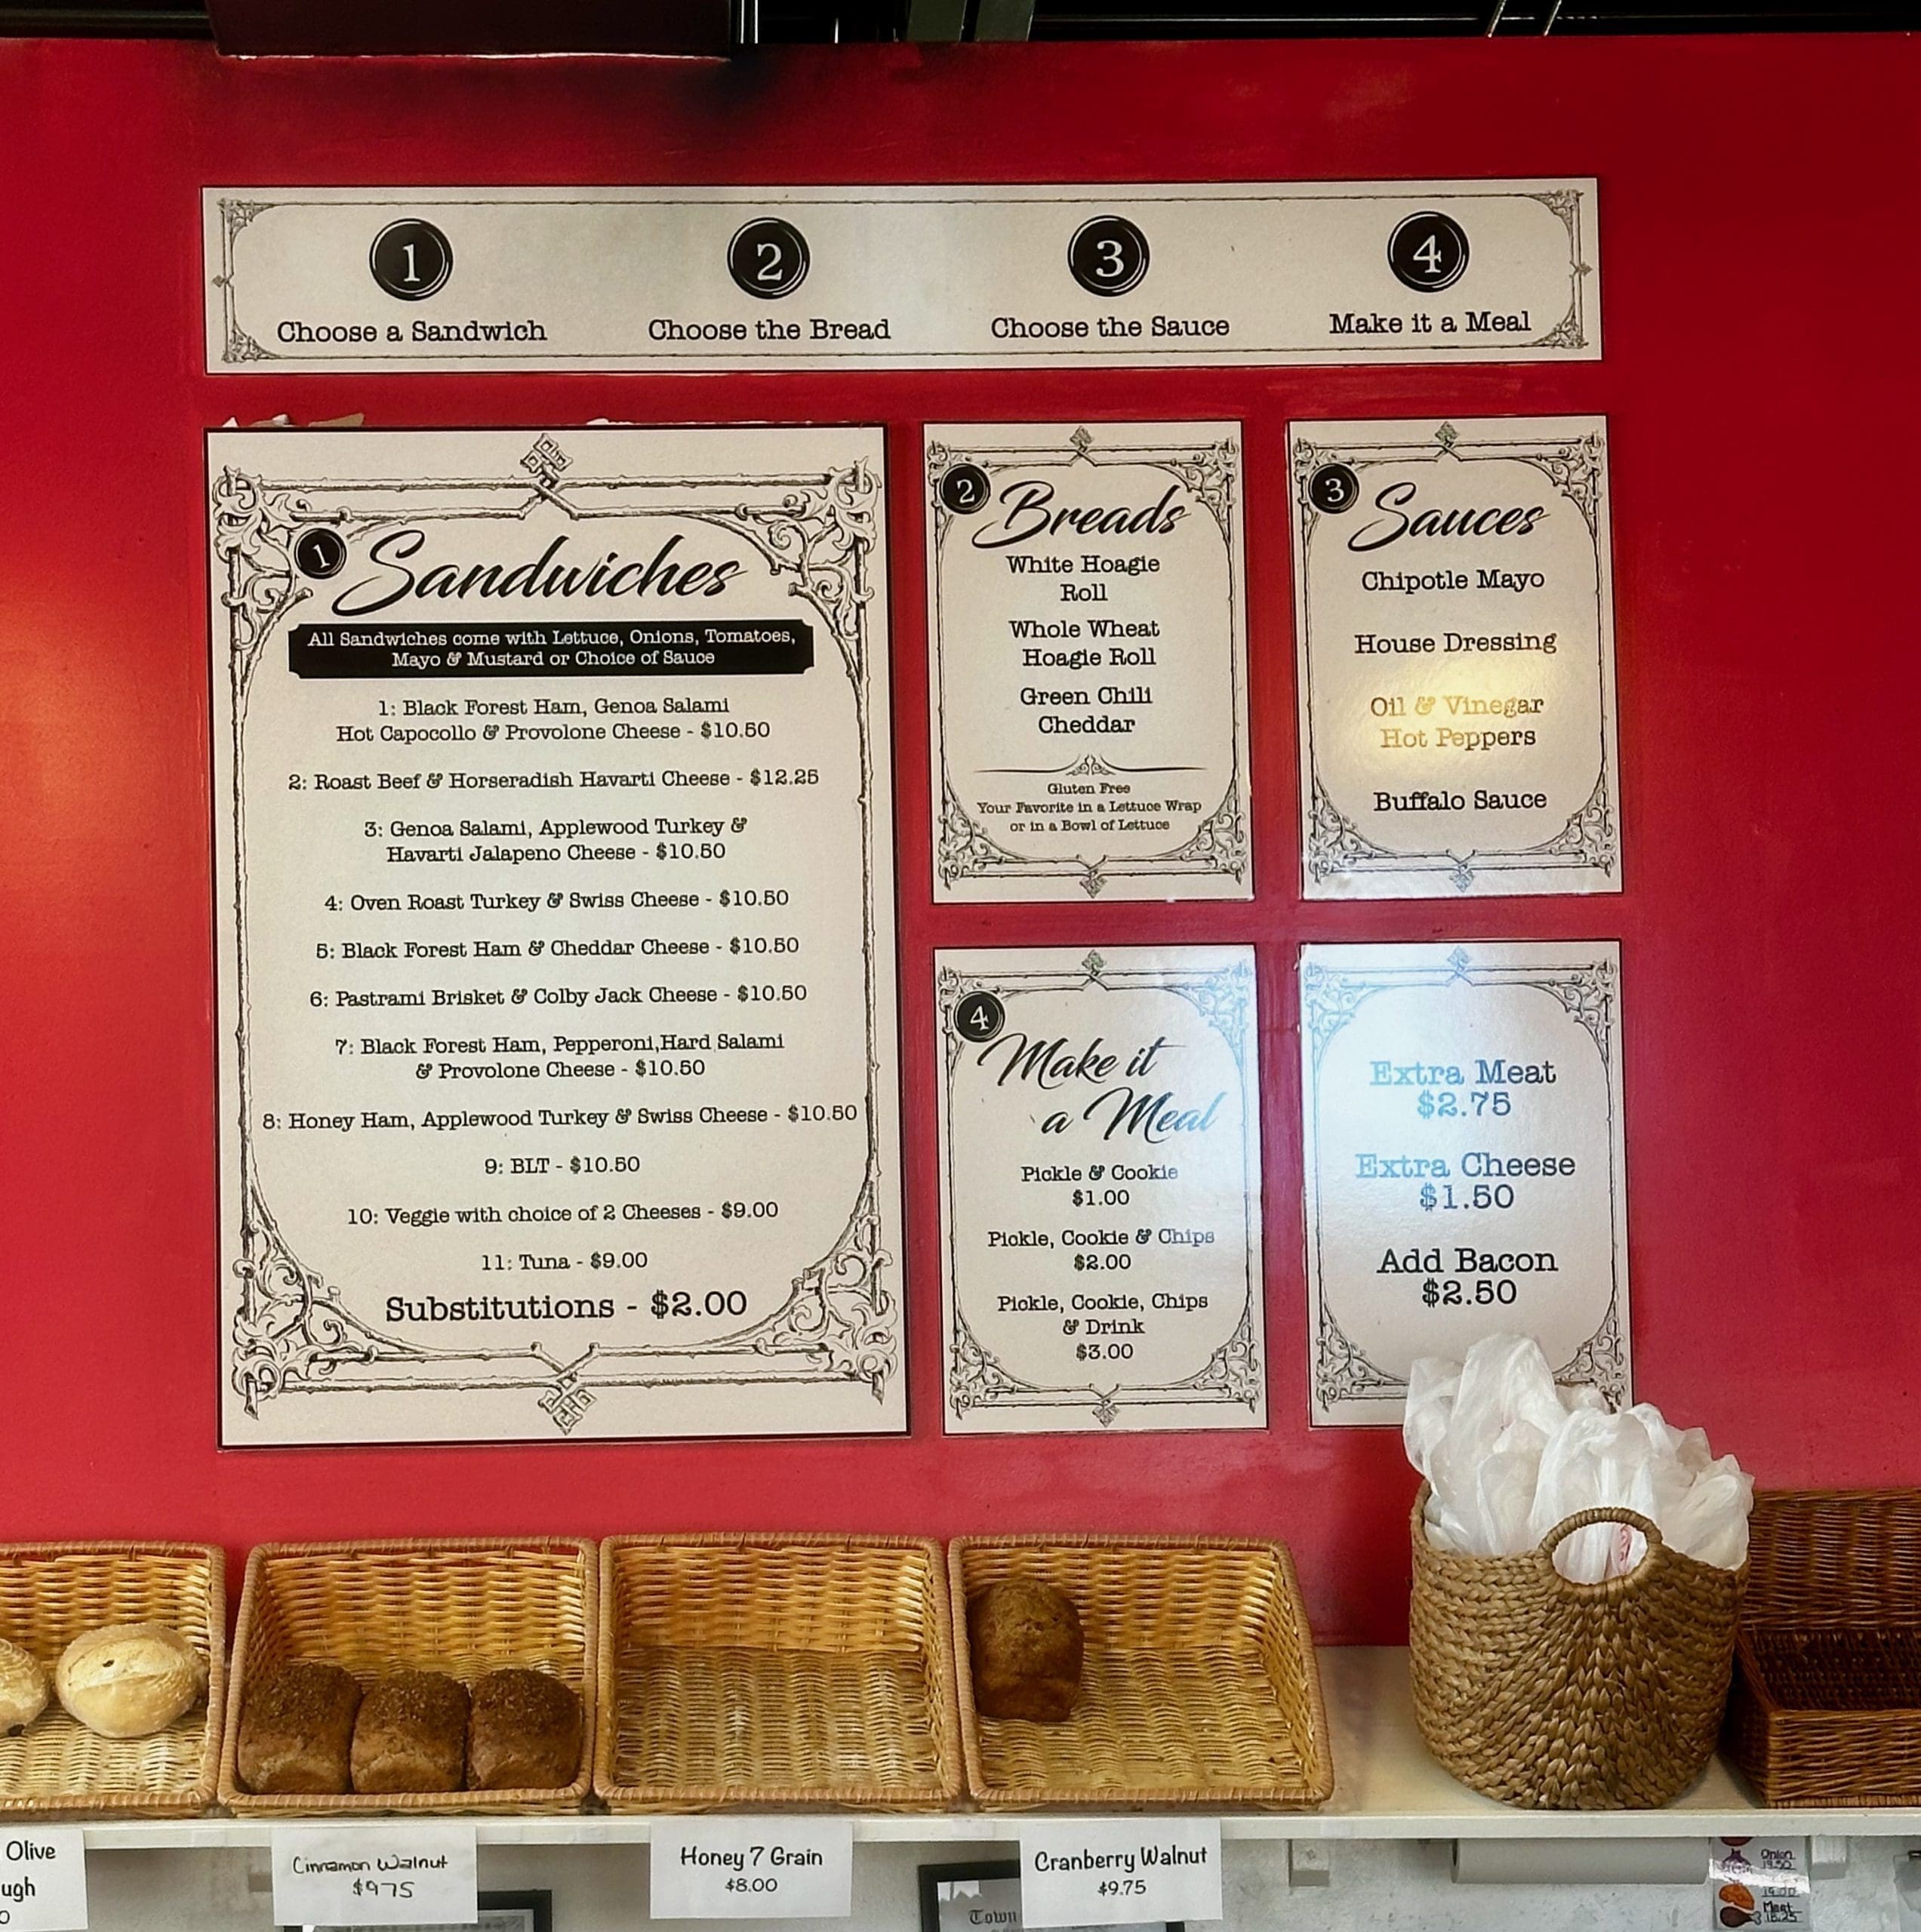 1
Choose a Sandwich
2
Choose the Bread
3
Choose the Sauce
4
Make it a Meal
1
Sandwiches
All Sandwiches come with Lettuce, Onions, Tomatoes,
Mayo & Mustard or Choice of Sauce
1: Black Forest Ham, Genoa Salami
Hot Capocollo & Provolone Cheese - $10.50
2: Roast Beef & Horseradish Havarti Cheese - $12.25
3: Genoa Salami, Applewood Turkey &
Havarti Jalapeno Cheese - $10.50
4: Oven Roast Turkey & Swiss Cheese - $10.50
5: Black Forest Ham & Cheddar Cheese - $10.50
6: Pastrami Brisket & Colby Jack Cheese - $10.50
7: Black Forest Ham, Pepperoni,Hard Salami
& Provolone Cheese - $10.50
8: Honey Ham, Applewood Turkey & Swiss Cheese - $10.50
9: BLT - $10.50
10: Veggie with choice of 2 Cheeses - $9.00
11: Tuna - $9.00
Substitutions - $2.00
2
Breads
White Hoagie
Roll
Whole Wheat
Hoagie Roll
Green Chili
Cheddar
Gluten Free
Your Favorite in a Lettuce Wrap
or in a Bowl of Lettuce
3
Sauces
Chipotle Mayo
House Dressing
Oil & Vinegar
Hot Peppers
Buffalo Sauce
4
Make it
a Meal
Pickle & Cookie
$1.00
Pickle, Cookie & Chips
$2.00
Pickle, Cookie, Chips
& Drink
$3.00
Extra Meat
$2.75
Extra Cheese
$1.50
Add Bacon
$2.50
Olive
ugh
0
Cinnamon Walnut
$975
Honey 7 Grain
$8.00
Cranberry Walnut
$9.75
Town
Onion
Meat